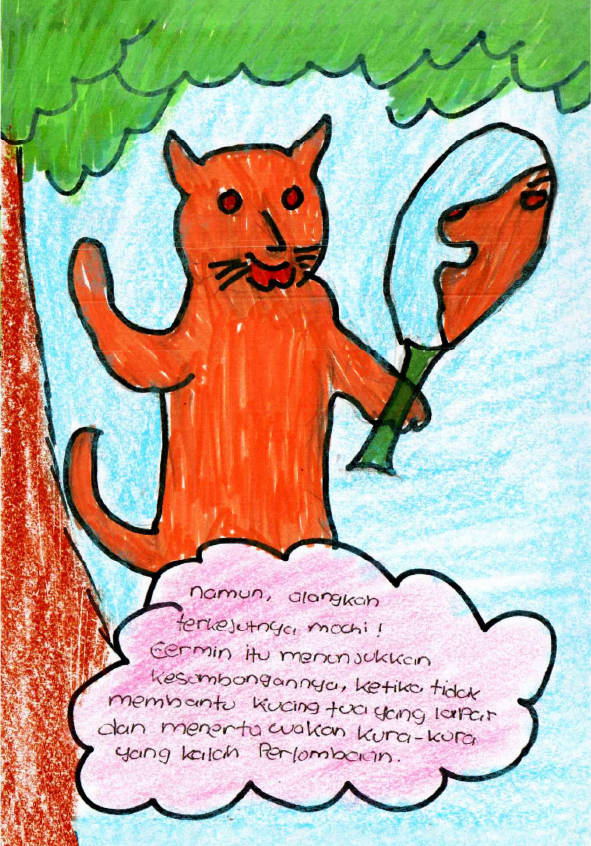 Namun, alangkah
terkejutnya mochi!
Cermin itu menunjukkan
kesombongannya, ketika tidak
membantu kucing tua yang lapar
dan menertawakan kura-kura
yang kalah Perlombaan.